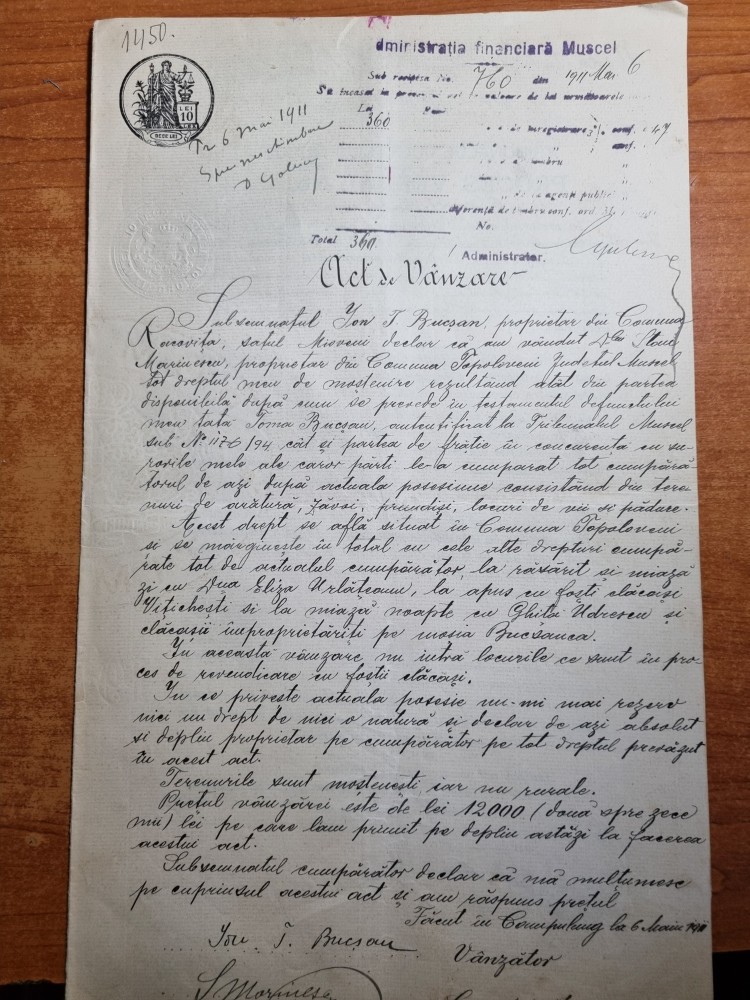 1450.
Administrația financiară Muscel
Sub recipisa No. 760 din 1911 Mai 6
S'a încasat
Lei
360
LEI
10
ZECE LEI
6 Mai 1911
de inregistrare 3% conf. 47
conf.
timbru
agenți publici
diferență de timbru conf. ord
No.
Total 360.
Administrator,
Act de Vânzare
Subsemnatul Ion T. Bucșan, proprietar din Comuna
Racovița, satul Mioveni declar că am vândut Dlui Stan
Marinescu, proprietar din Comuna Topoloveni Județul Muscel
tot dreptul meu de moștenire rezultând atât din partea
disponibilă după cum se prevede în testamentul defunctului
meu tată Toma Bucșan, autentificat la Tribunalul Muscel
sub No 1176/94 cât și partea de frăție în concurența cu su-
rorile mele ale caror părți le-a cumparat tot cumpără-
torul de azi după actuala posesiune consistând din tere
nuri de arătură, zăvoi, prundiși, locuri de vii și pădure.
Acest drept se află situat în Comuna Topoloveni
si se mărginește în total cu cele alte drepturi cumpă-
rate tot de actualul cumpărător, la răsărit si miază
zi cu Dna Eliza Urlățeanu, la apus cu foști clăcași
Vitichești si la miază noapte cu Ghița Udrescu și
clăcașii împroprietăriți pe moșia Bucșanca.
În această vânzare nu intră locurile ce sunt în pro-
ces de revendicare cu foștii clăcași.
In ce privește actuala posesie nu-mi mai rezerv
nici un drept de nici o natură și declar de azi absolut
si deplin proprietar pe cumpărător pe tot dreptul prevăzut
în acest act.
Terenurile sunt moștenești iar nu rurale.
Prețul vânzărei este de lei 12000 (două spre zece
mii) lei pe care lam primit pe depliu astăzi la facerea
acestui act.
Subsemnatul cumpărător declar că mă mulțumesc
pe cuprinsul acestui act și am răspuns prețul
Făcut în Câmpulung la 6 Maiu 1911
Ion T. Bucșan
Vânzător
S Marinescu